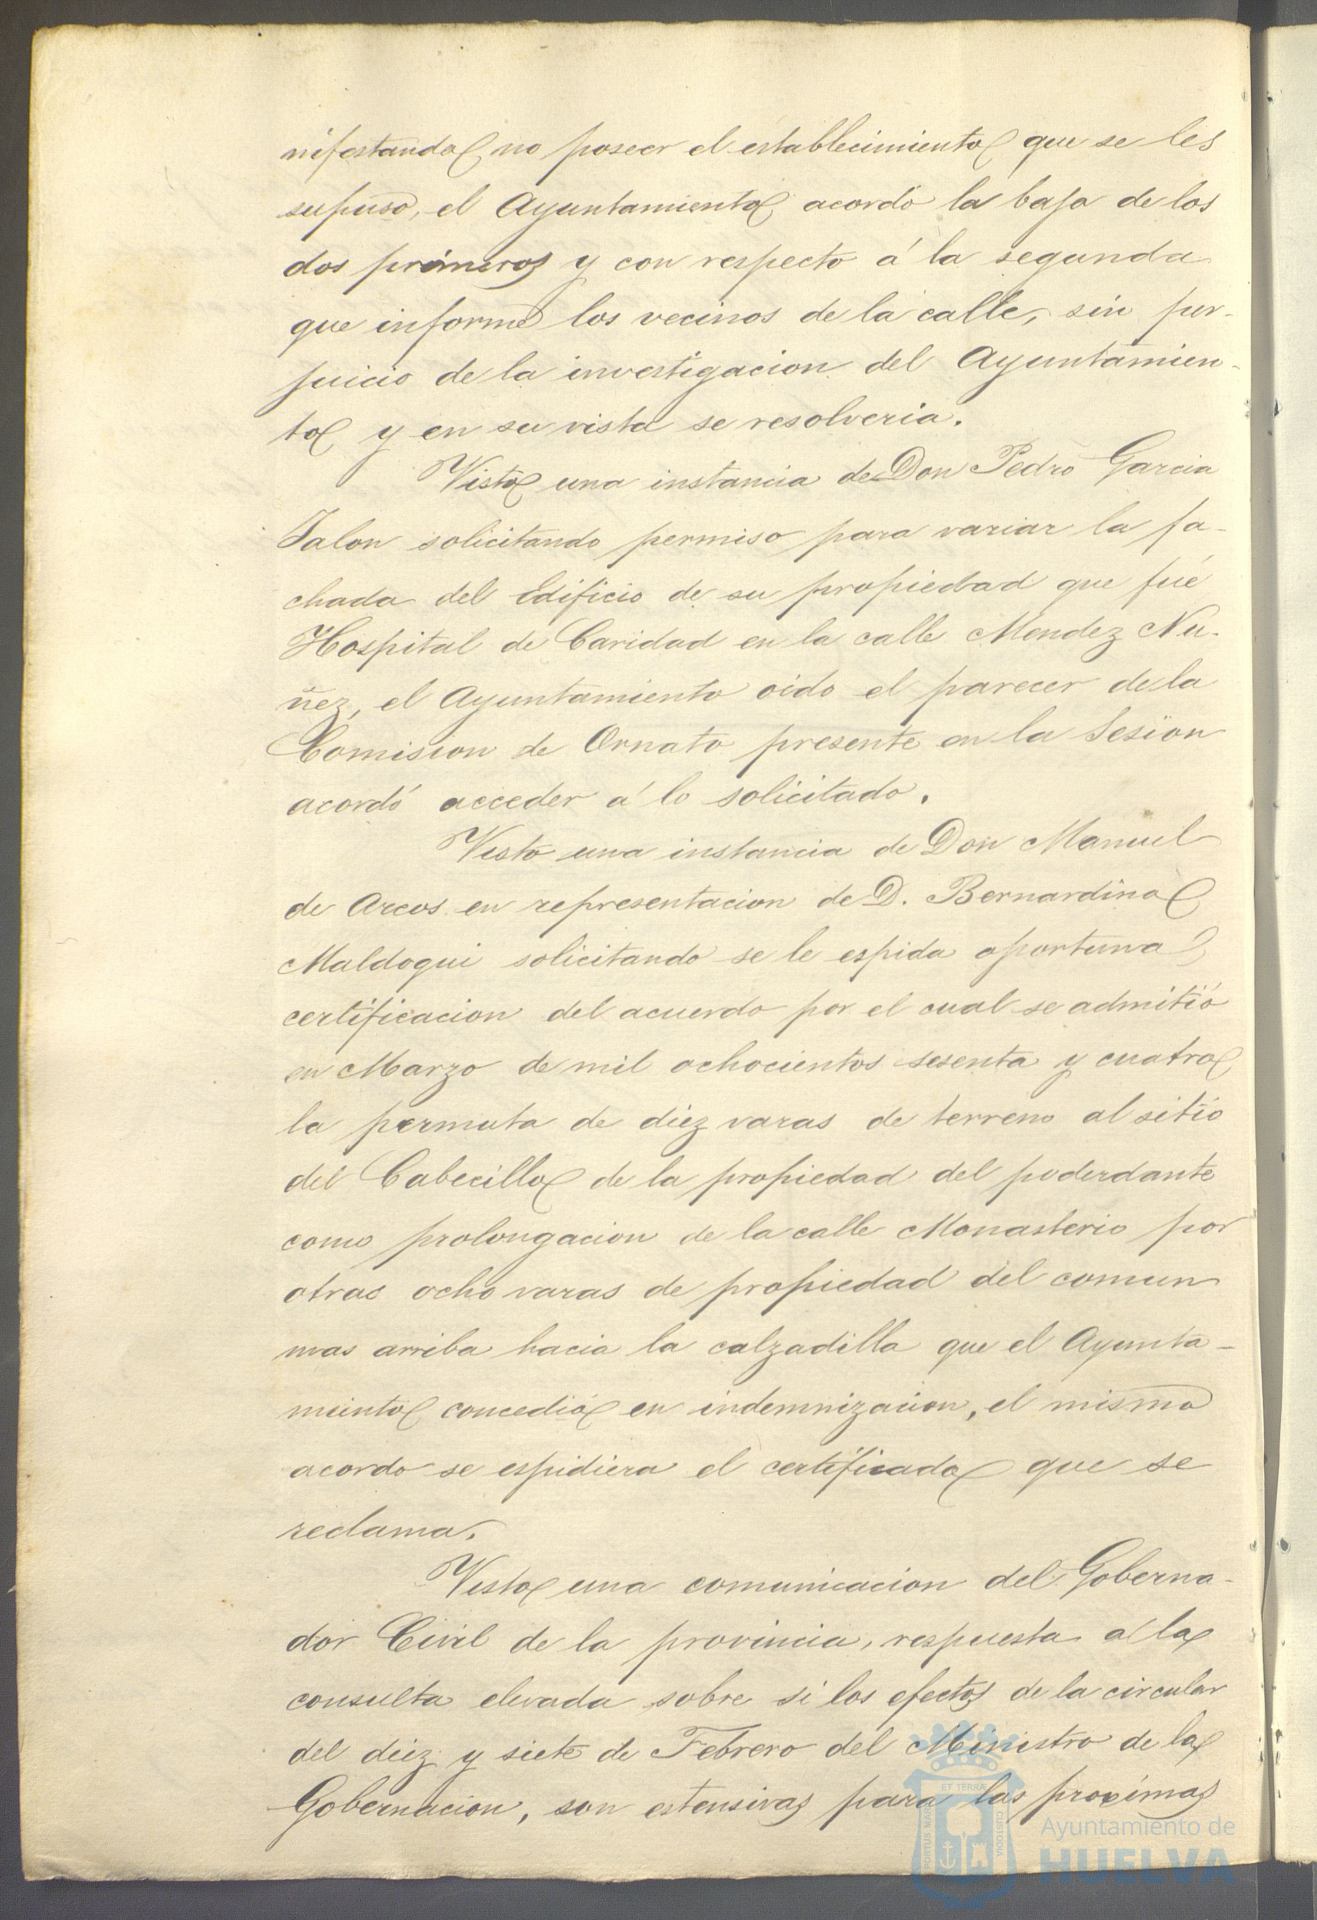 nifestando no poseer el establecimiento que se les
supuso, el Ayuntamiento acordó la baja de los
dos primeros y con respecto á la segunda
que informe los vecinos de la calle, sin per-
juicio de la investigacion del Ayuntamien-
to y en su vista se resolveria.
Visto una instancia de Don Pedro Garcia
Jalon solicitando permiso para variar la fa-
chada del Edificio de su propiedad que fué
Hospital de Caridad en la calle Mendez Nu-
ñez, el Ayuntamiento oido el parecer de la
Comision de Ornato presente en la Sesion
acordó acceder á lo solicitado.
Visto una instancia de Don Manuel
de Arcos en representacion de D. Bernardino
Maldoqui solicitando se le espida oportuna
certificacion del acuerdo por el cual se admitió
en Marzo de mil ochocientos sesenta y cuatro
la permuta de diez varas de terreno al sitio
del Cabecillo de la propiedad del poderdante
como prolongacion de la calle Monasterio por
otras ocho varas de propiedad del comun
mas arriba hacia la calzadilla que el Ayunta-
miento concedió en indemnizacion, el mismo
acordo se espidiera el certificado que se
reclama.
Visto una comunicacion del Goberna-
dor Civil de la provincia, respuesta á la
consulta elevada sobre si los efectos de la circular
del diez y siete de Febrero del Ministro de la
Gobernacion, son estensivas para las proximas
PORTUS MARIS ET TERRAE CUSTODIA
Ayuntamiento de
HUELVA